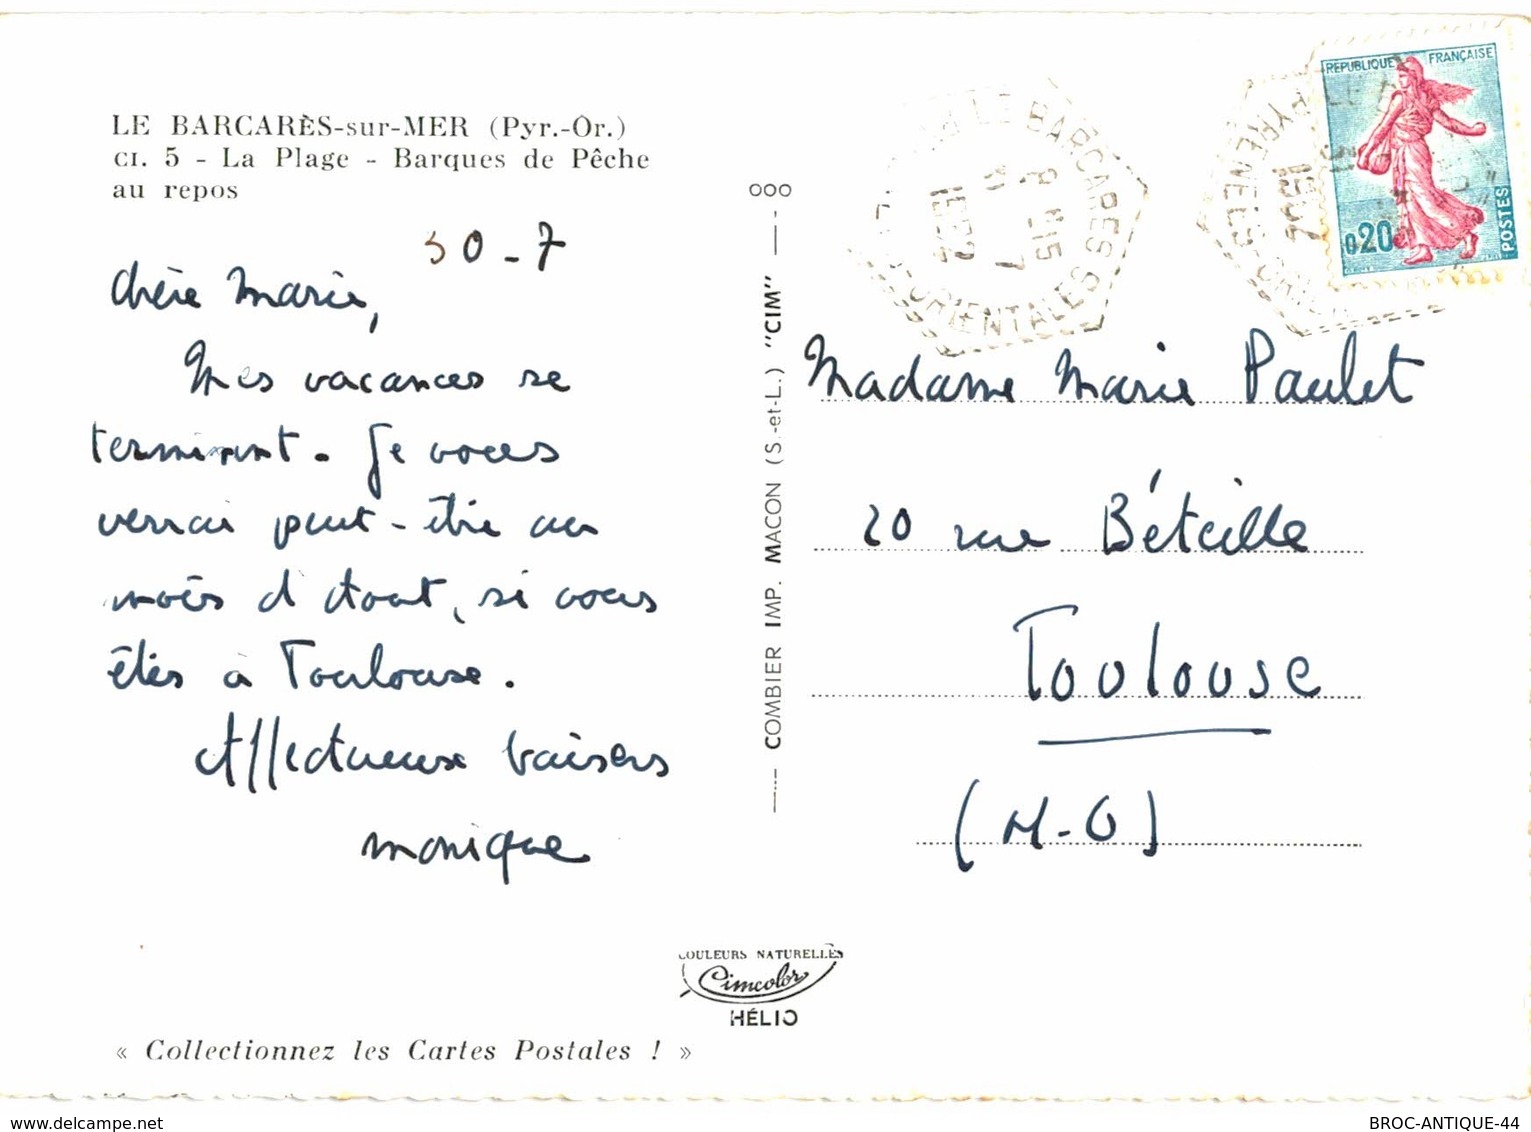 LE BARCARÈS-sur-MER (Pyr.-Or.)
CI. 5 - La Plage - Barques de Pêche
au repos
30-7
chère Marie,
Mes vacances se
terminent. Je vous
verrai peut-être au
mois d'Août, si vous
êtes à Toulouse.
Affectueux baisers
monique
COMBIER IMP. MACON (S.-et-L.) "CIM"
000
LE BARCARÈS
ORIENTALES
REPUBLIQUE FRANÇAISE
0,20
POSTES
PYRENEES-ORIEN
Madame Marie Paulet
20 rue Béteille
Toulouse
(H-G)
COULEURS NATURELLES
Cimcolor
HÉLIO
« Collectionnez les Cartes Postales ! »
www.delcampe.net
BROC-ANTIQUE-44